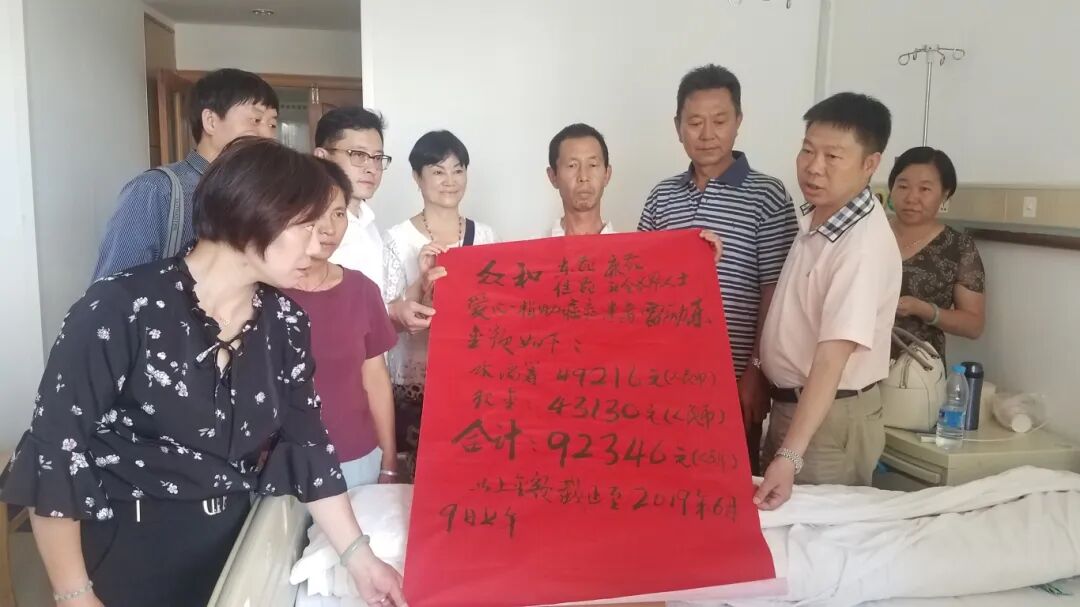 众和 康苑
佳苑 社会各界人士
爱心捐助癌症患者
金额如下：
水滴筹 49216元(人民币)
现金：43130元(人民币)
合计：92346元(人民币)
以上金额截止至2019年6月
9日上午